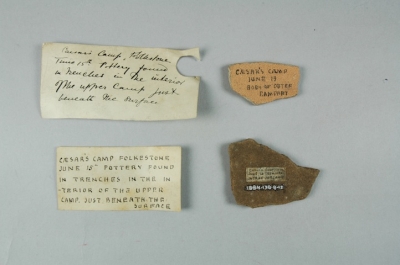 Caesar's Camp, Folkestone
June 15th Pottery found
in trenches in the interior
of the upper Camp just
beneath the surface
CÆSAR'S CAMP
JUNE 19
CÆSAR'S CAMP FOLKESTONE
JUNE 15TH POTTERY FOUND
IN TRENCHES IN THE IN
-TERIOR OF THE UPPER
CAMP. JUST BENEATH THE
SURFACE